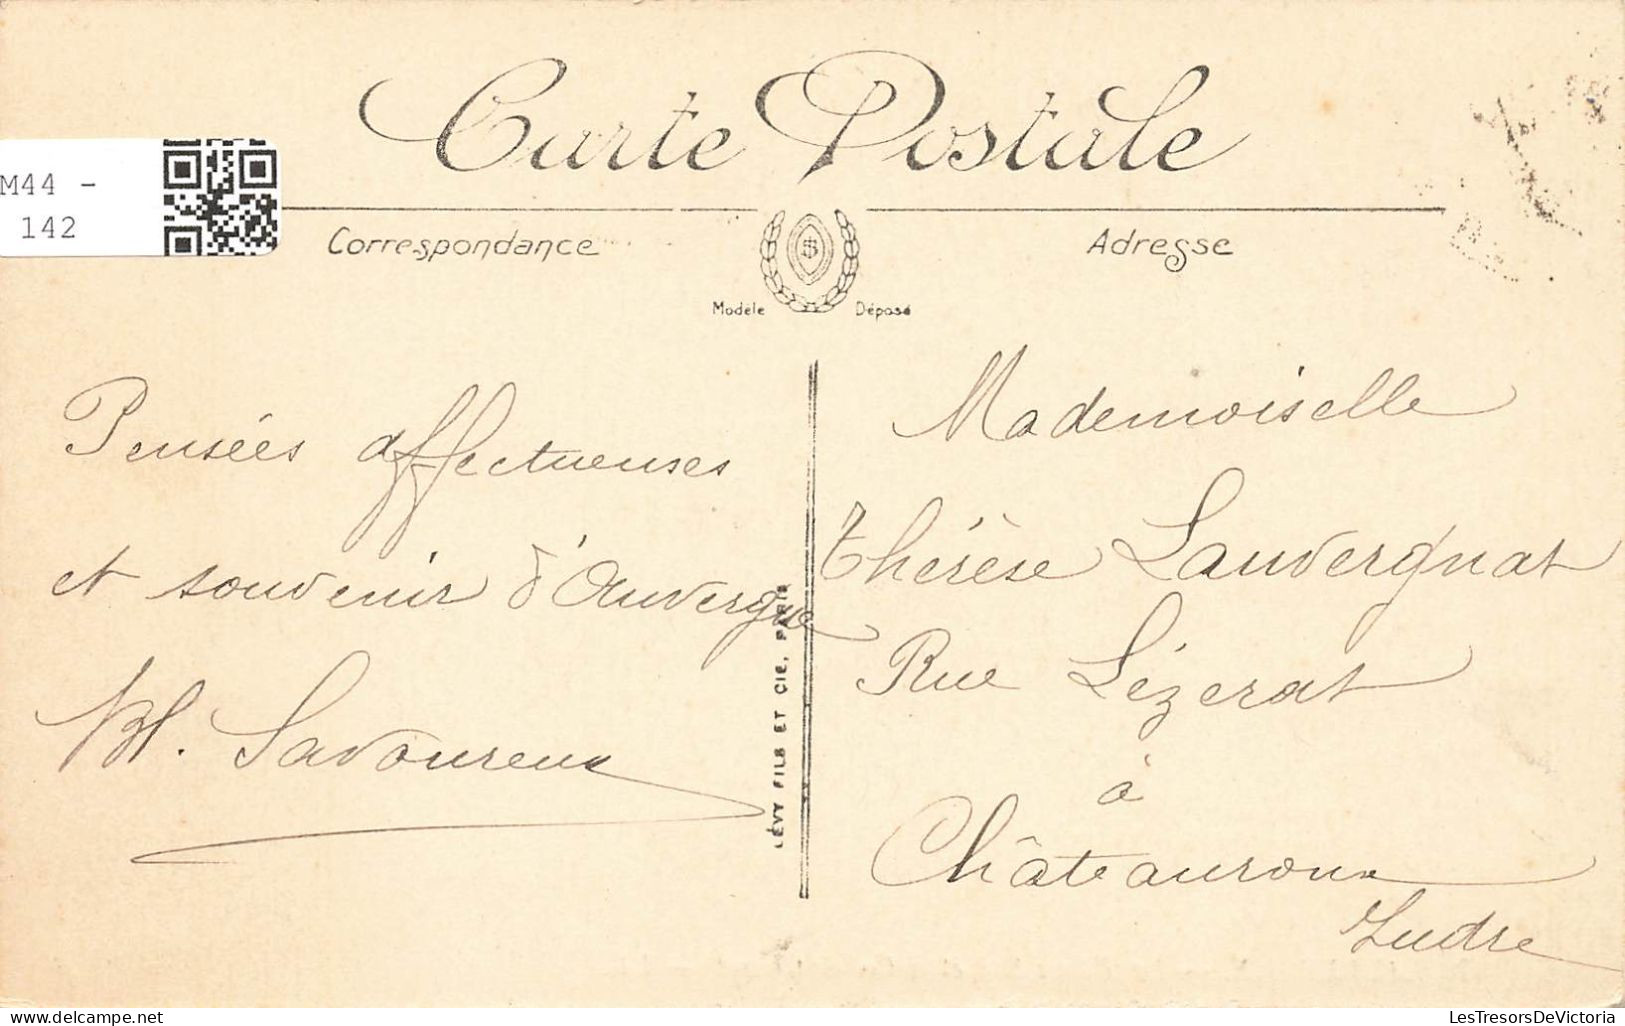 Carte Postale
M44 -
142
Correspondance
Adresse
Modèle Déposé
Pensées affectueuses
et souvenir d'Auvergne
Bl. Savoureux
LÉVY FILS ET CIE, PARIS
Mademoiselle
Thérèse Lauvergnat
Rue Lézerat
à
Châteauroux
Indre
www.delcampe.net
LesTresorsDeVictoria